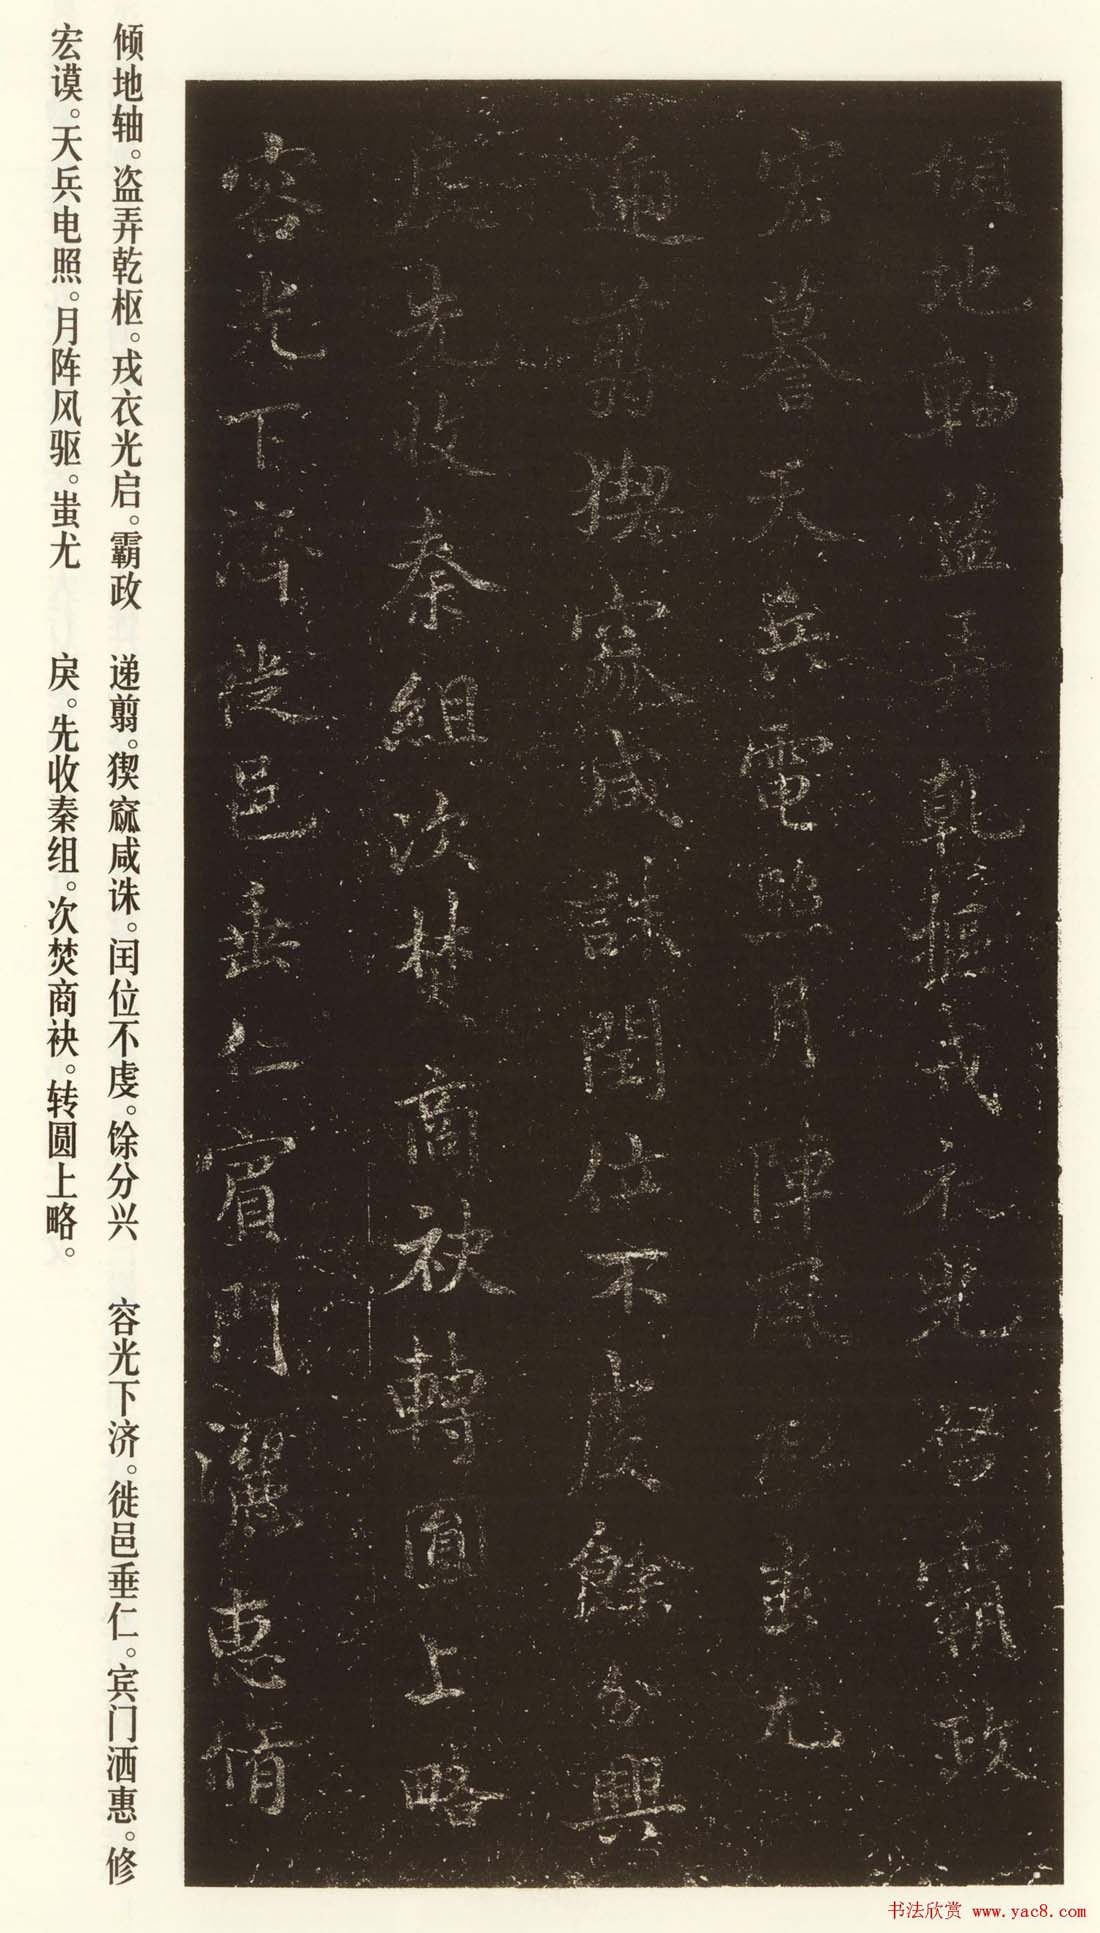 傾地軸盜弄乾樞戎衣光啓霸政
宏謩天兵電照月陣風駈蚩尤
遞翦猰窳咸誅閏位不虔餘分興
戾先收秦組次焚商袂轉圓上略
容光下濟徙邑垂仁賓門灑惠脩
倾地轴。盗弄乾枢。戎衣光启。霸政
宏谟。天兵电照。月阵风驱。蚩尤
递翦。猰窳咸诛。闰位不虔。馀分兴
戾。先收秦组。次焚商袂。转圆上略。
容光下济。徙邑垂仁。宾门洒惠。修
书法欣赏 www.yac8.com